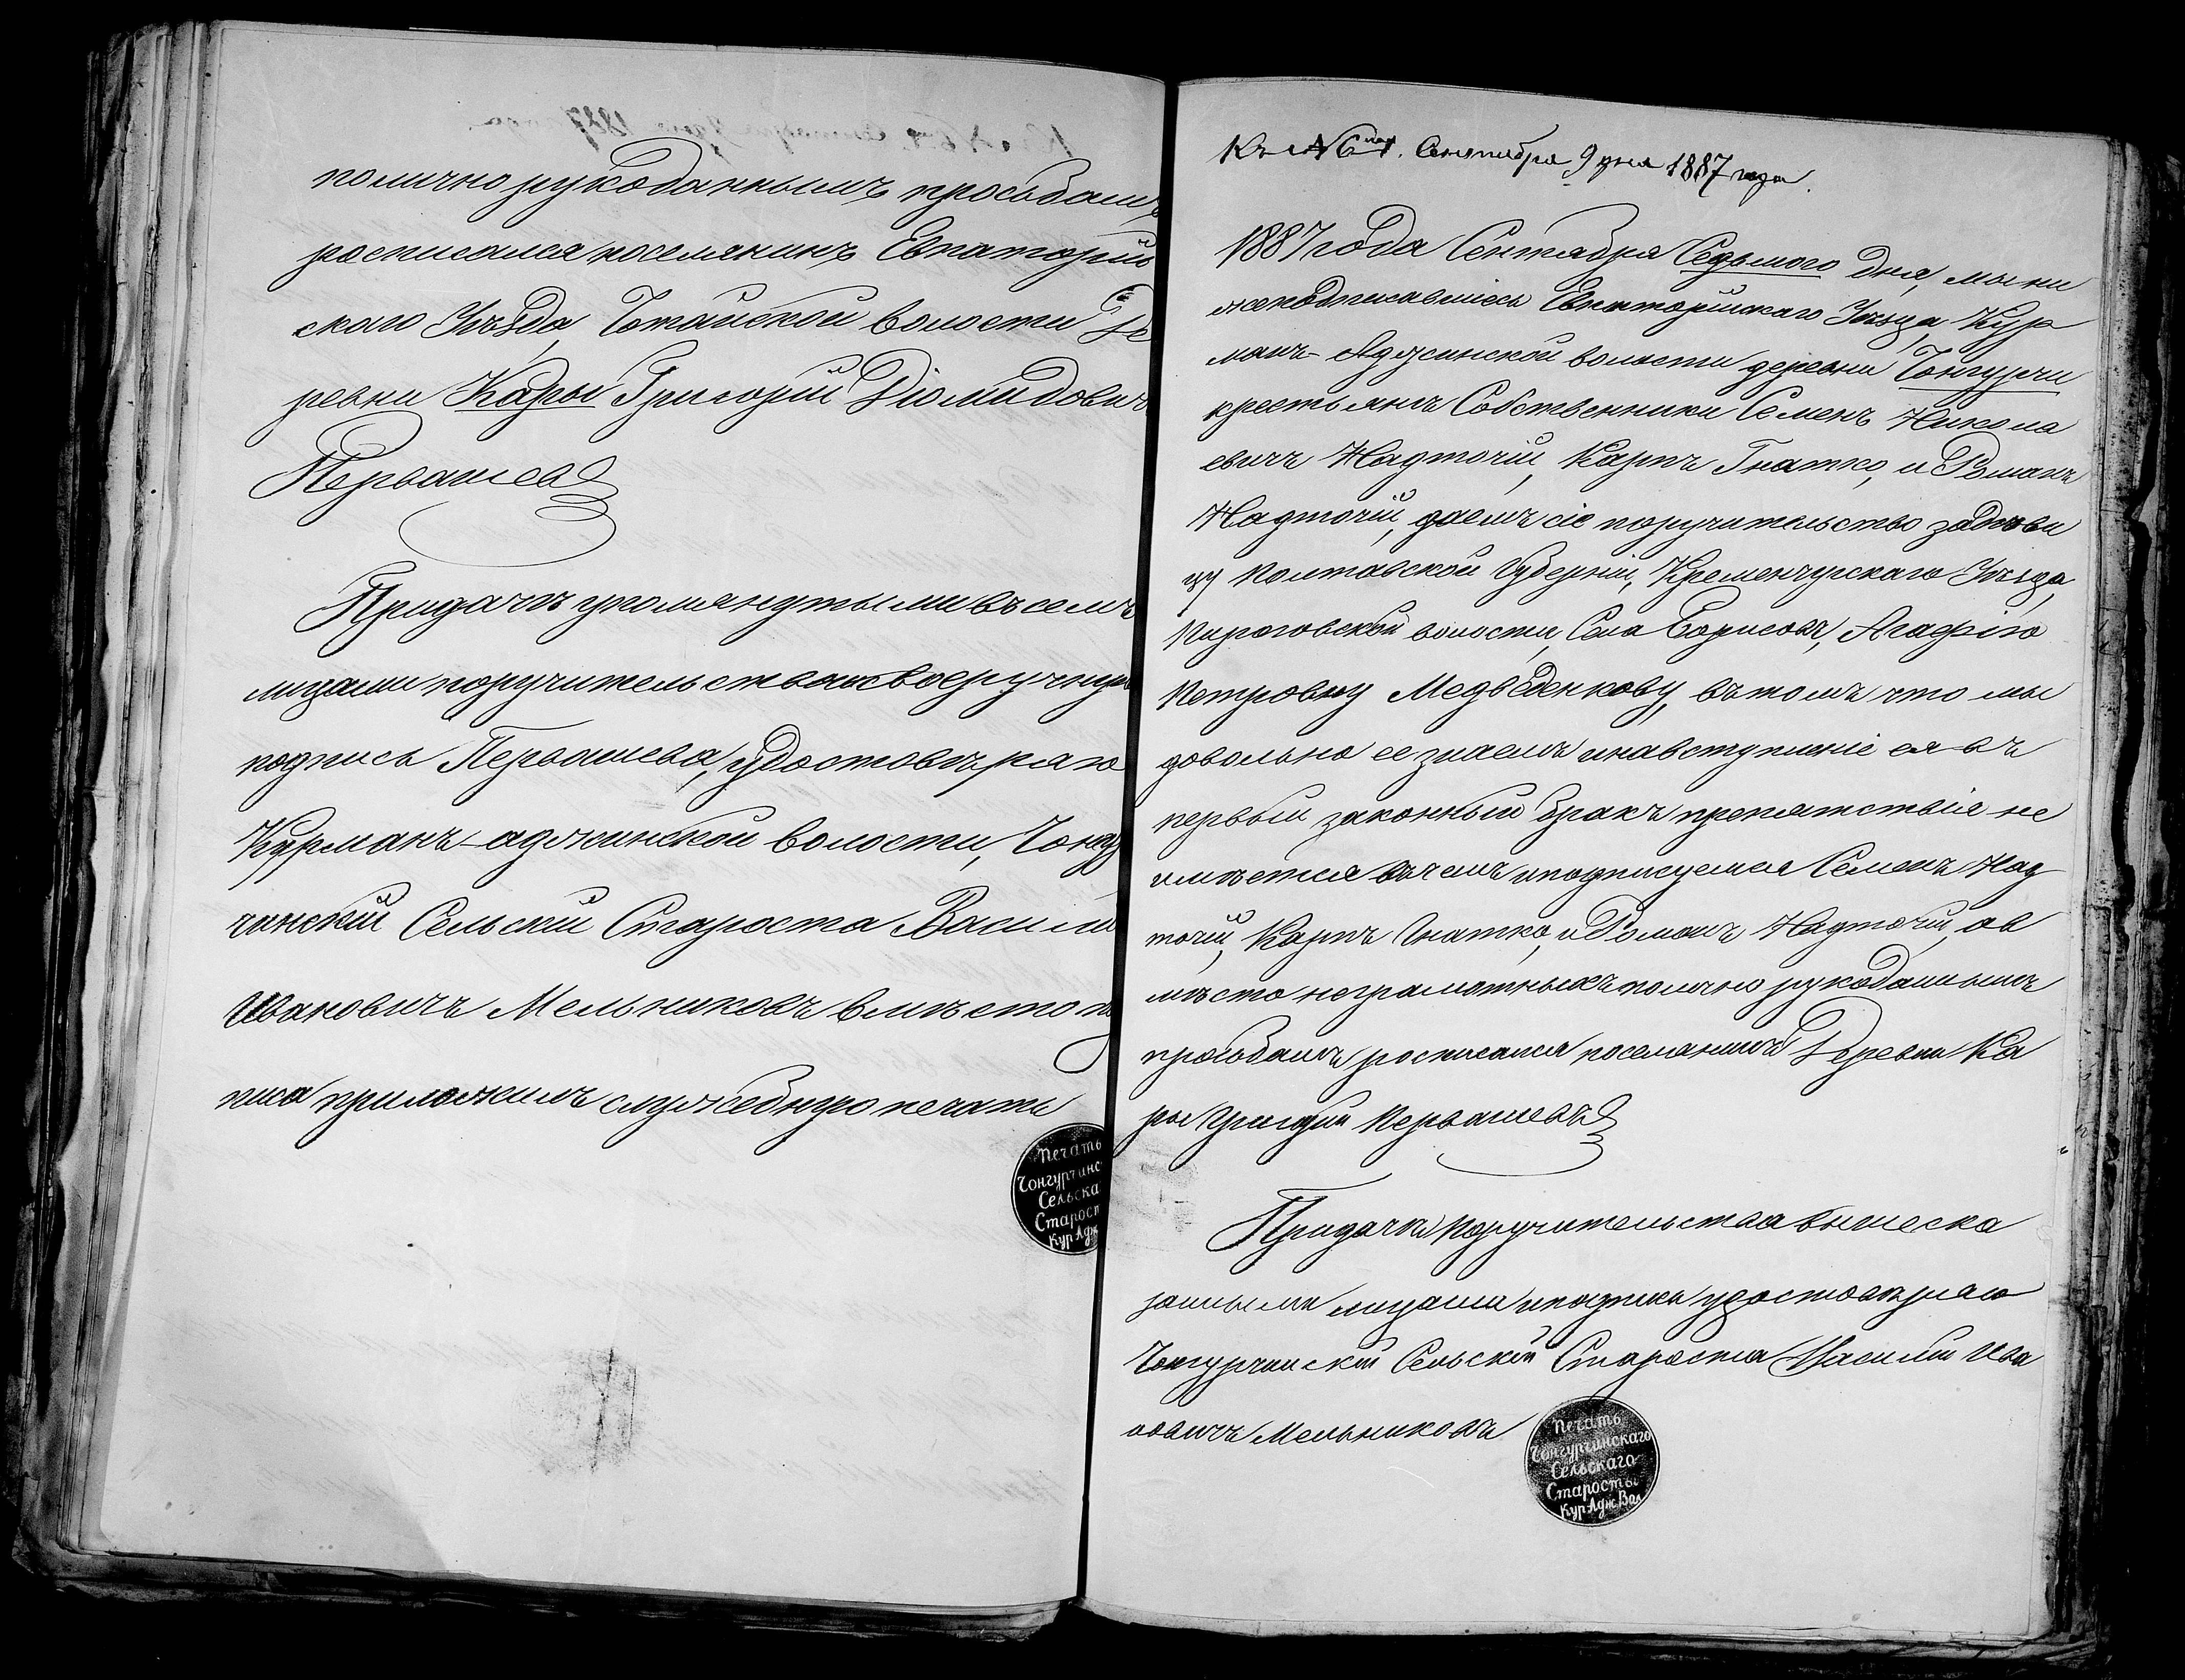 полично рукоданнымъ просьбамъ
росписался поселянинъ Евпаторій
скаго Уѣзда, Чотайской волости Де
ревни Кары Григорій Діомидович
Первашевъ
При дачѣ упомянутыми въ семъ
лицами поручительства и своеручную
подпись Первашева, удостовѣряю
Курманъ-аджинской волости, Чонгур
чинскій Сельскій Староста Василій
Ивановичъ Мельниковъ вмѣсто под
писа приложилъ служебную печать
Печать
Чонгурчинс
Сельска
Старост
Кур Адж
Къ №6. Сентября 9 дня 1887 года.
1887 года Сентября Седьмого дня, мы ни
жеподписавшіеся Евпаторійскаго Уѣзда, Кур
манъ-Аджинской волости деревни Чонгурчи
крестьянъ Собственники Семенъ Никола
евичъ Надточій, Карпъ Гнатко, и Романъ
Надточій, даемъ сіе поручительство за дѣви
цу Полтавской Губерніи, Кременчугскаго Уѣзда,
Пироговской волости, Села Борисовъ, Агафію
Петровну Медвѣденкову, въ томъ что мы
довольно ее знаемъ и на вступленіе ея въ
первый законный бракъ препятствія не
имѣется въ чемъ и подписуемся Семенъ Над
точій, Карпъ Гнатко, и Романъ Надточій, ав
мѣсто неграмотныхъ полично рукоданнымъ
просьбамъ росписался поселянинъ Деревни Ка
ры Григорій Первашевъ
При дачѣ поручительства вышеска
занными лицами и подпись удостовѣряю
Чонгурчинскій Сельскій Староста Василій Ива
новичъ Мельниковъ
Печать
Чонгурчинскаго
Сельскаго
Старосты
Кур Адж Вол